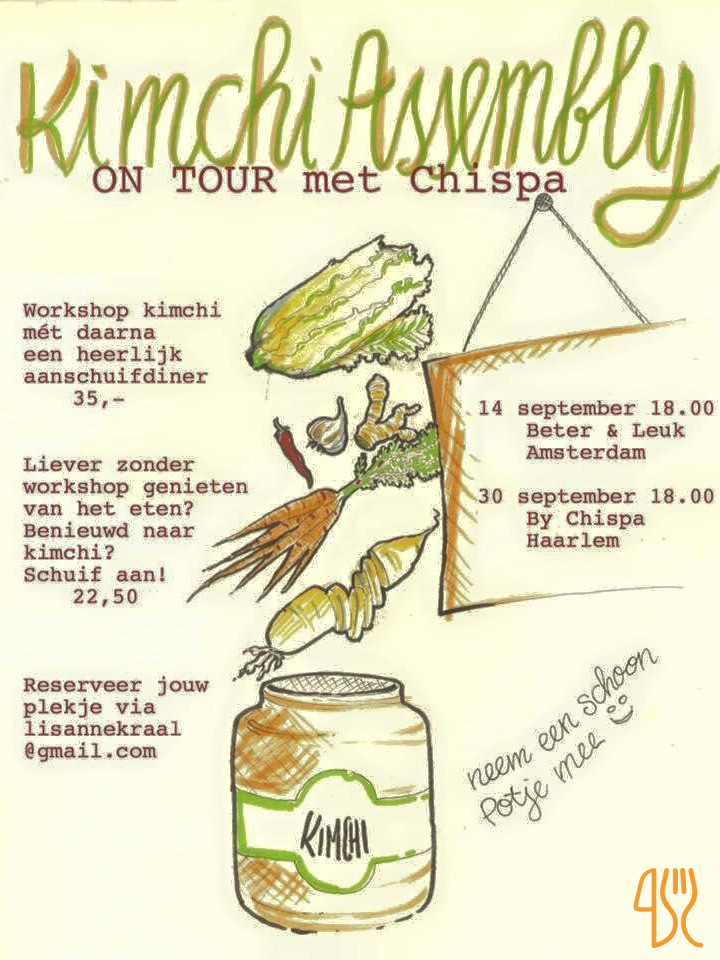 Kimchi Assembly
ON TOUR met Chispa
Workshop kimchi
mét daarna
een heerlijk
aanschuifdiner
35,-
Liever zonder
workshop genieten
van het eten?
Benieuwd naar
kimchi?
Schuif aan!
22,50
Reserveer jouw
plekje via
lisannekraal
@gmail.com
14 september 18.00
Beter & Leuk
Amsterdam
30 september 18.00
By Chispa
Haarlem
neem een schoon
potje mee
KIMCHI